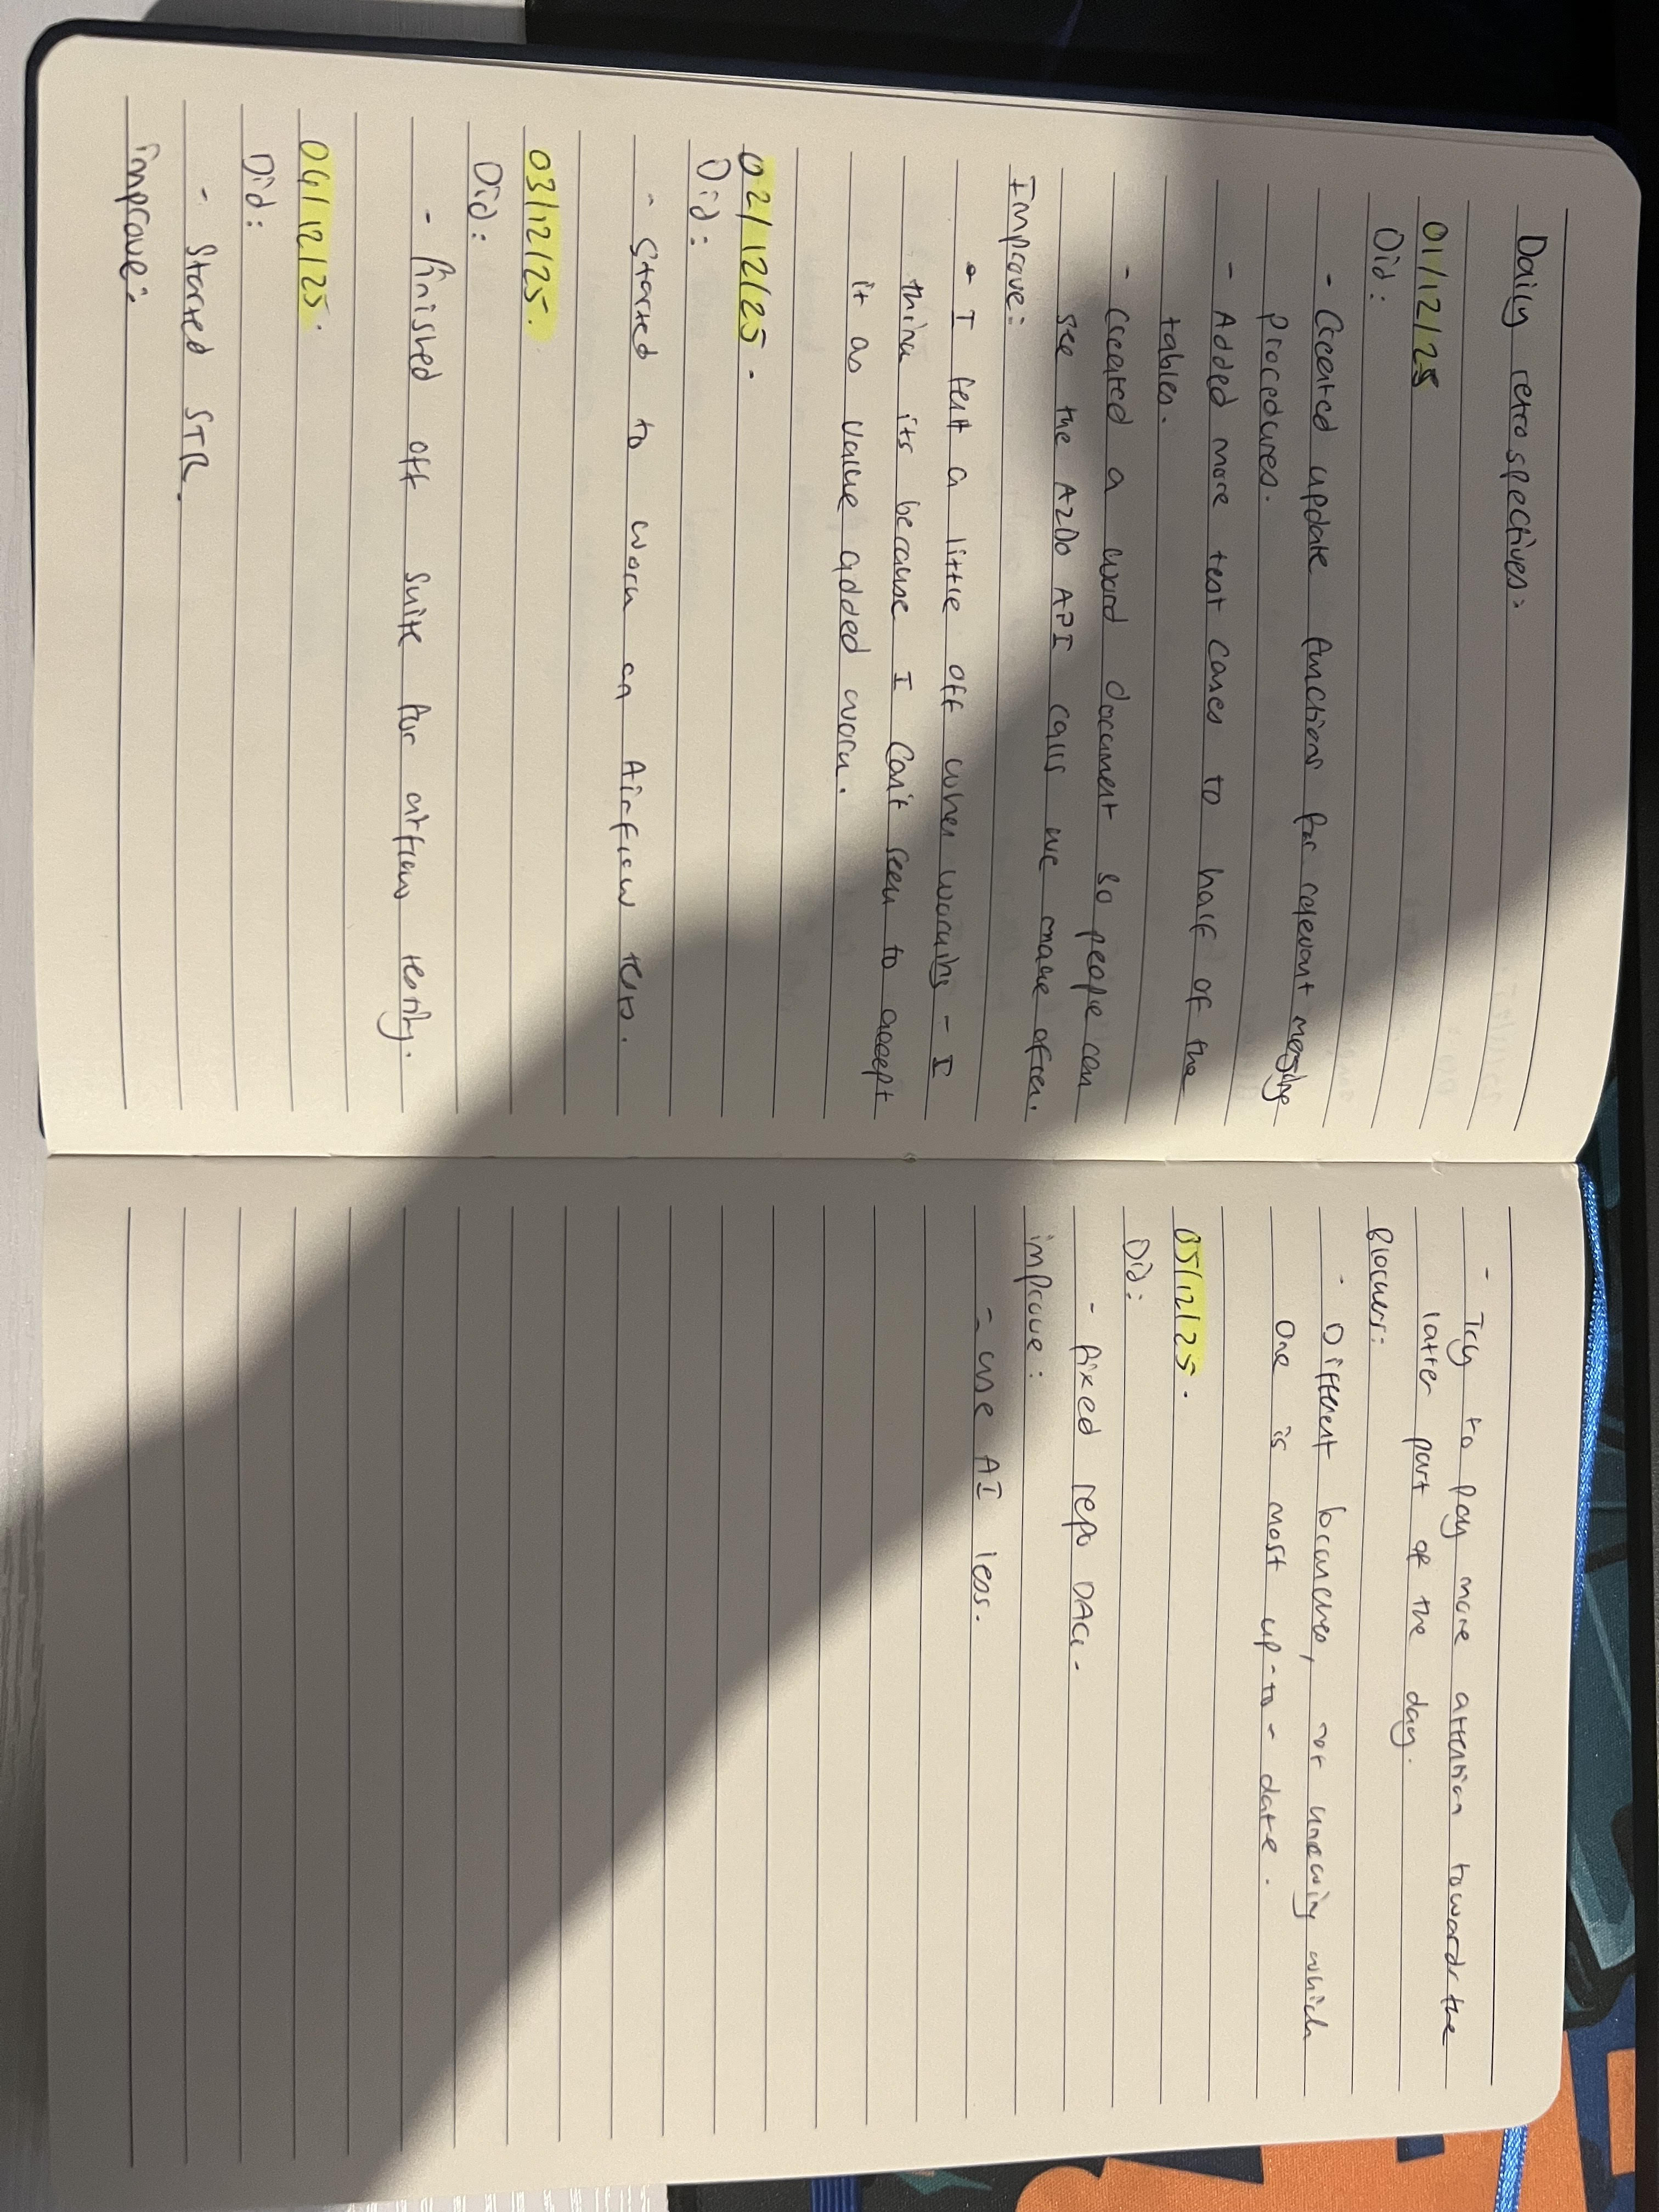 Daily retrospectives:
01/12/25
Did:
- Created update functions for relevant merging
procedures.
- Added more test cases to half of the
tables.
- Created a word document so people can
see the AZDO API calls we make often.
Improve:
- I felt a little off when working - I
think its because I can't seem to accept
it as value added work.
02/12/25.
Did:
- Started to work on Airflow tests.
03/12/25.
Did:
- finished off suite for airflow testing.
04/12/25.
Did:
- Started STR.
improve:
- Try to pay more attention towards the
latter part of the day.
Blockers:
- Different branches, not knowing which
one is most up-to-date.
05/12/25.
Did:
- fixed repo DAG.
improve:
- use AI less.